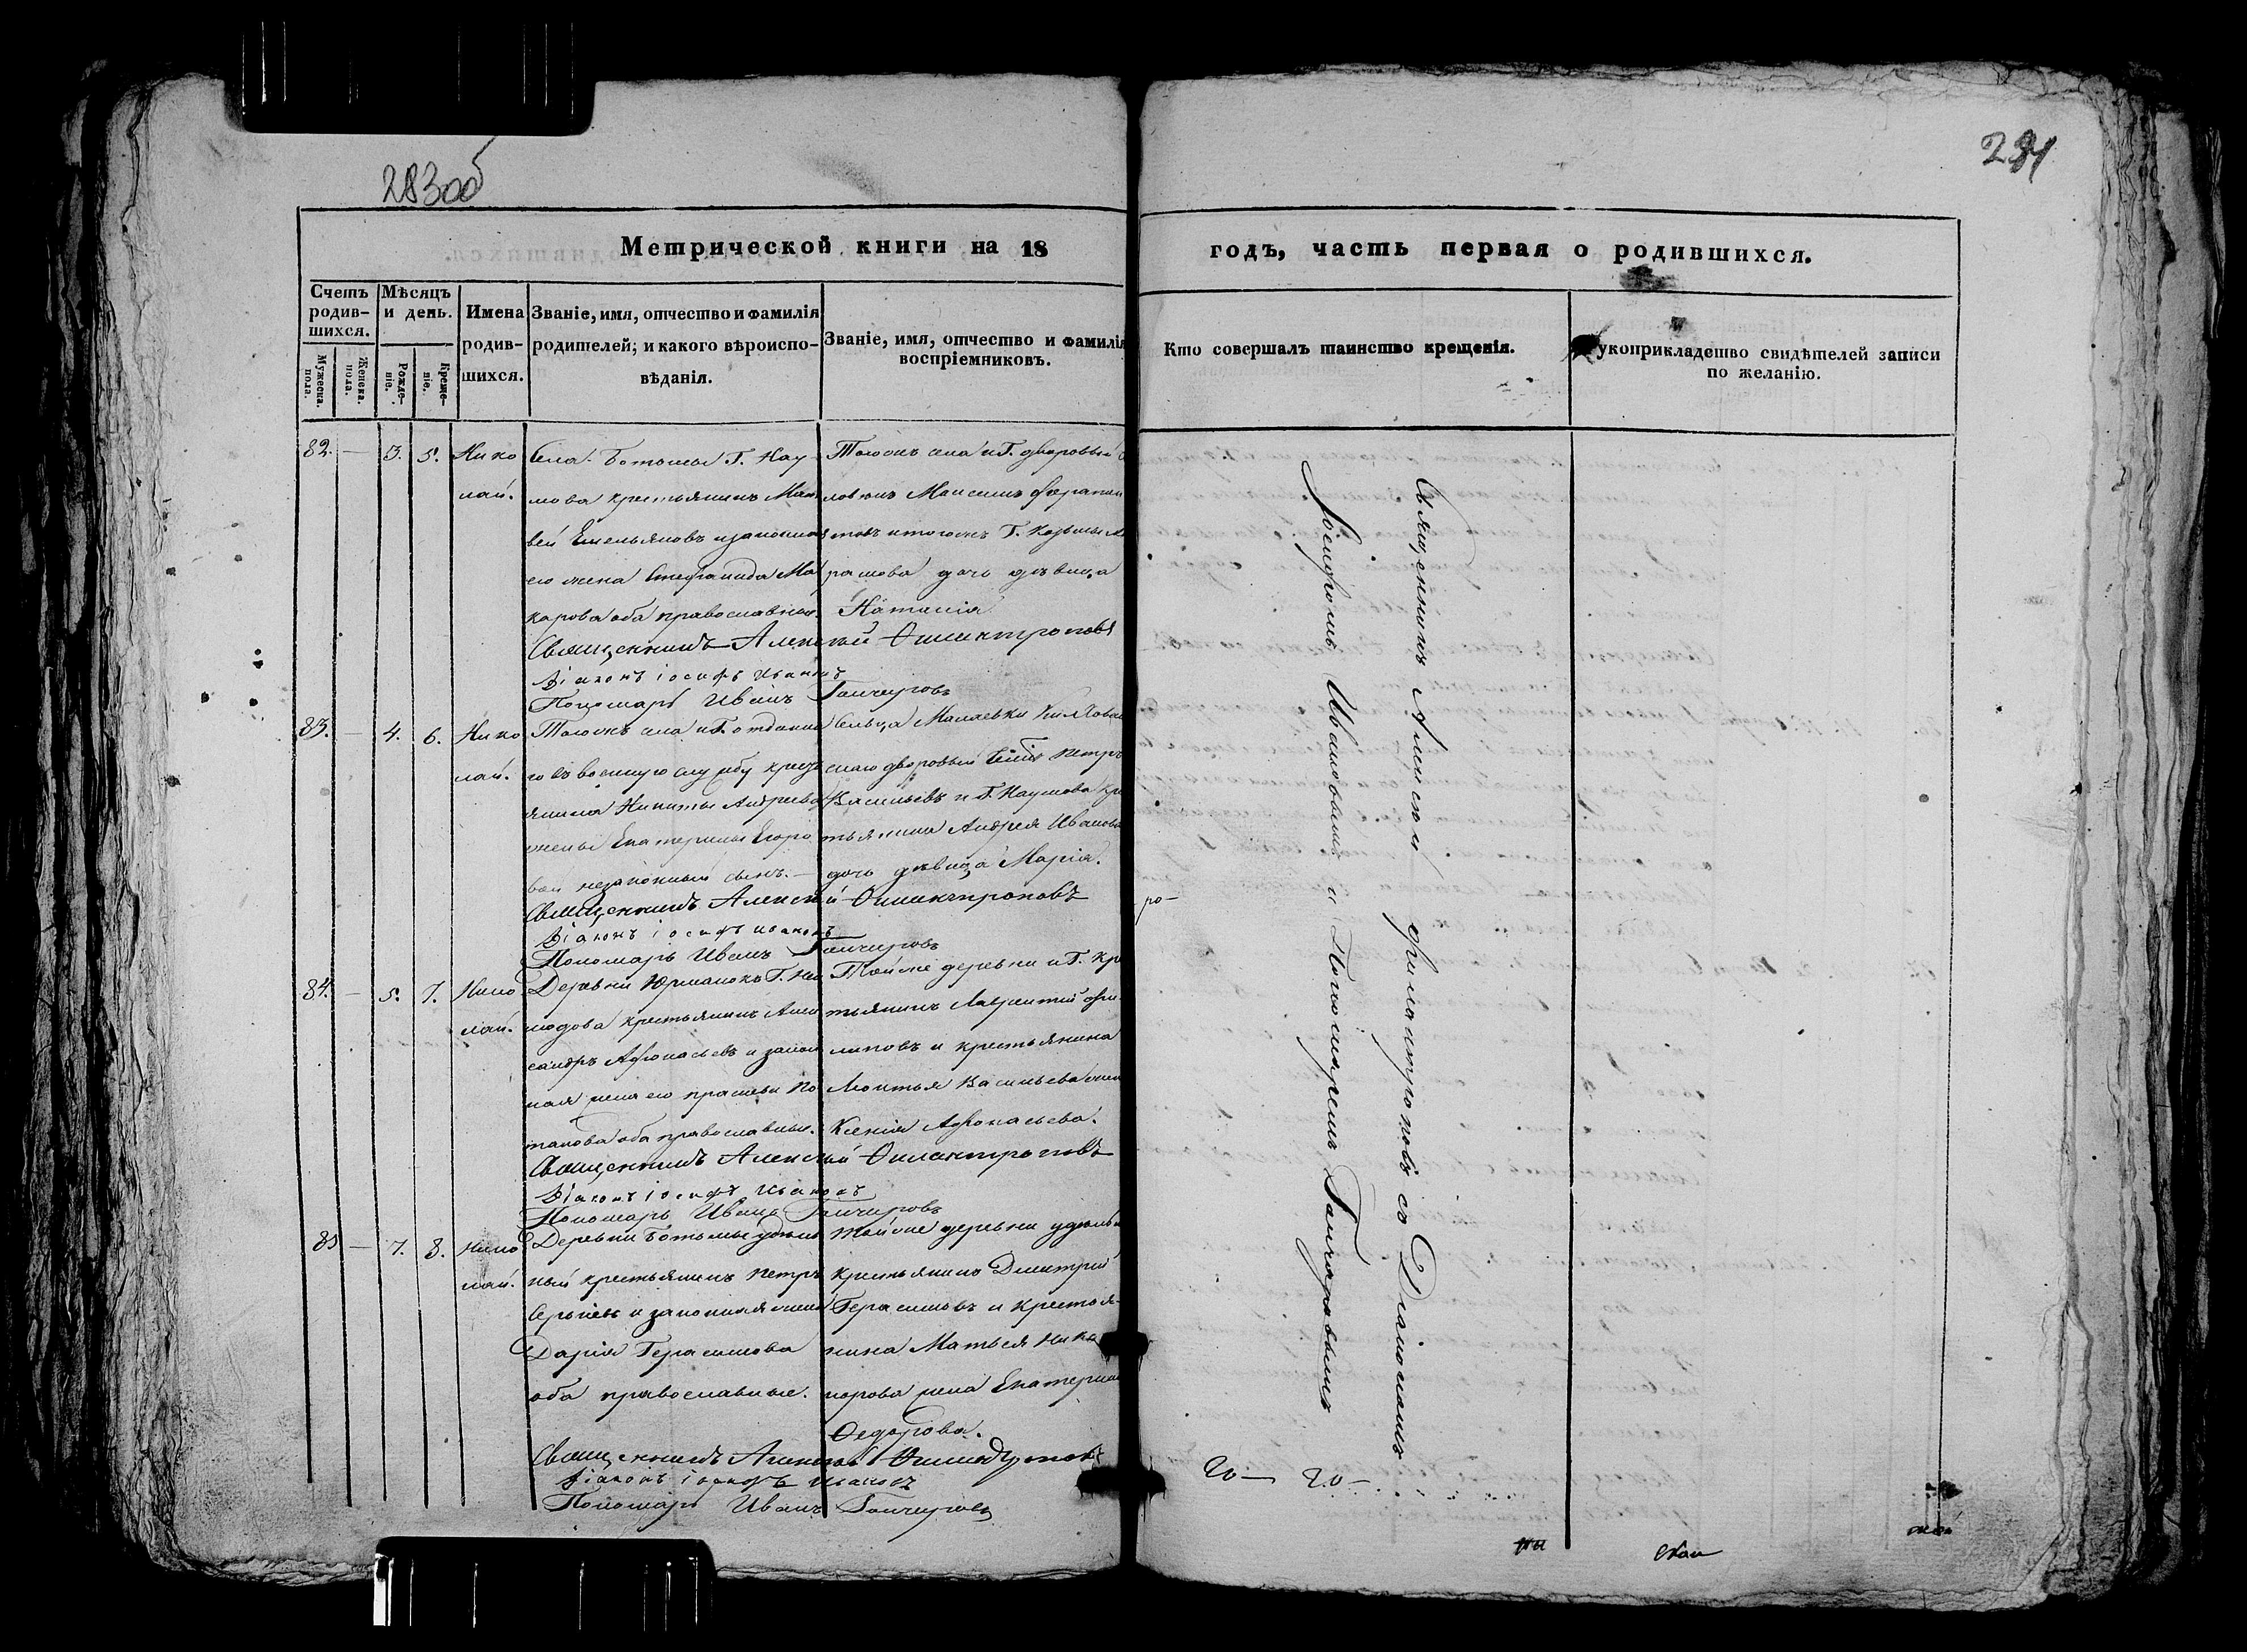 283об
284
Метрической книги на 18 годъ, часть первая о родившихся.
Счетъ родив-шихся.
Мужеска. пола.
Женска. пола.
Мѣсяцъ и день.
Рожде-нiе.
Креще-нiе.
Имена родив-шихся.
Званiе, имя, отчество и фамилiя родителей; и какого вѣроиспо-вѣданiя.
Званiе, имя, отчество и фамилiя воспрiемниковъ.
Кто совершалъ таинство крещенiя.
укоприкладство свидѣтелей записи по желанiю.
82. — 3. 5. Нико
лай.
Села Ботьмы Г. Нау
мова крестьянинъ Мат
вей Емельяновъ и законная
его жена Стефанида Ма
карова оба православные.
Тогожъ села и Г. дворовый
ловекъ Максимъ Ферапон
товъ и тогожъ Г. Козьмы
рамова дочь дѣвица
Наталiя
Священникъ Алексѣй Филантроповъ
Дiаконъ Iосифъ Ивановъ
Пономарь Иванъ Гончаровъ
83. — 4. 6. Нико
лай.
Тогожъ села и Г. отданна
го въ военную службу крест
янина Никиты Андреева
жены Екатерины Егоро
вой незаконный сынъ. —
Сельца Малаевки
скаго дворовый Петръ
Васильевъ и Г. Наумова кре
тьянина Андрея Иванова
дочь дѣвица Марiя.
Священникъ Алексѣй Филантроповъ
Дiаконъ Iосифъ Ивановъ
Пономарь Иванъ Гончаровъ
84. — 5. 7. Нико
лай.
Деревни Юрманокъ Г. Не
людова крестьянинъ Алек
сандръ Афонасьевъ и закон
ная жена его Прасковья По
тапова оба православные.
Тойже деревни и Г. кре
тьянинъ Лаврентiй Фи
липовъ и крестьянина
Леонтья Васильева жена
Ксенiя Афонасьева.
Священникъ Алексѣй Филантроповъ
Дiаконъ Iосифъ Ивановъ
Пономарь Иванъ Гончаровъ
85 — 7. 8. Нико
лай.
Деревни Ботьмы удѣль
ный крестьянинъ Петръ
Сергѣевъ и законная жена
Дарiя Герасимова
оба православные.
Тойже деревни удѣльн
крестьянинъ Дмитрiй
Герасимовъ и крестья-
нина Матвея Ника
норова жена Екатерина
Федорова.
Священникъ Алексѣй Филантроповъ
Дiаконъ Iосифъ Ивановъ
Пономарь Иванъ Гончаровъ
Священникъ Алексѣй Филантроповъ съ Дiакономъ
Iосифомъ Ивановымъ и Пономаремъ Гончаровымъ
ро—
20— 20—